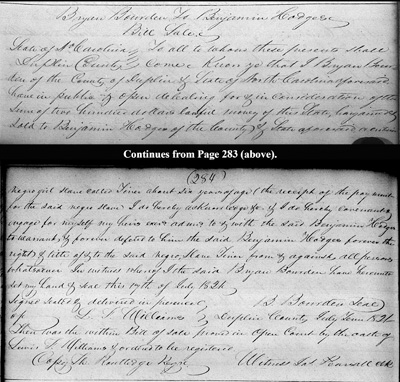 Bryan Bourden To Benjamin Hodges
Bill Sale
State of No Carolina To all to whom these presents shall
Duplin County Come Know ye that I Bryan Bour
den of the County of Duplin & State of North Carolina
have in public & open & in consideration of the
Sum of two hundred dollars lawful money of this State,
Sold to Benjamin Hodges of the County & State aforesaid a certain
Continues from Page 283 (above).
(284)
negro girl slave called about six years of age (the receipt of the payment
for the said negro slave I do hereby acknowledge & I do hereby covenant &
engage for myself my heirs to & with the said Benjamin Hodges
to warrant & forever defend to him the said Benjamin Hodges forever the
right & title of to the said negro Slave from & against all persons
whatsoever In witness whereof I the said Bryan Bourden have hereunto
set my hand & seal this 17th of July 1824
Signed sealed & delivered in presence B Bourden Seal
of Williams Duplin County July Term 1824
Then was the within Bill of sale proved in Open Court by the oath of
Williams & ordered to be registered
Copy Witness Jas Pearsall clk